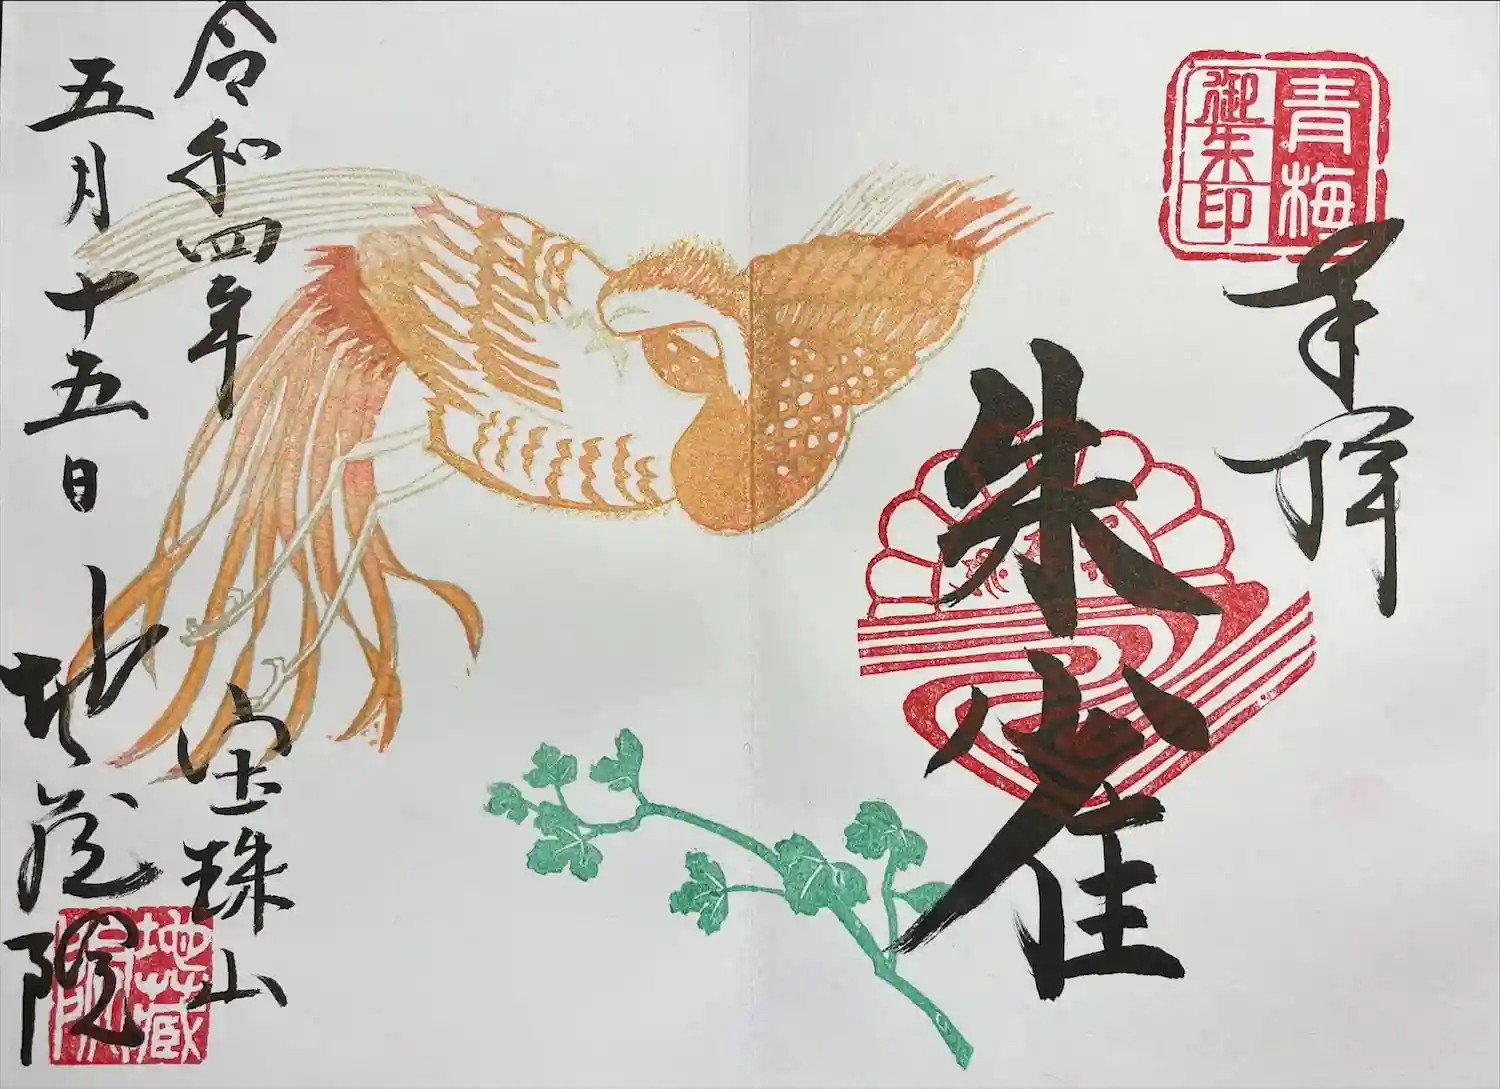 青梅
御朱印
奉拝
朱雀
令和四年
五月十五日
宝珠山
地蔵院
地蔵
院